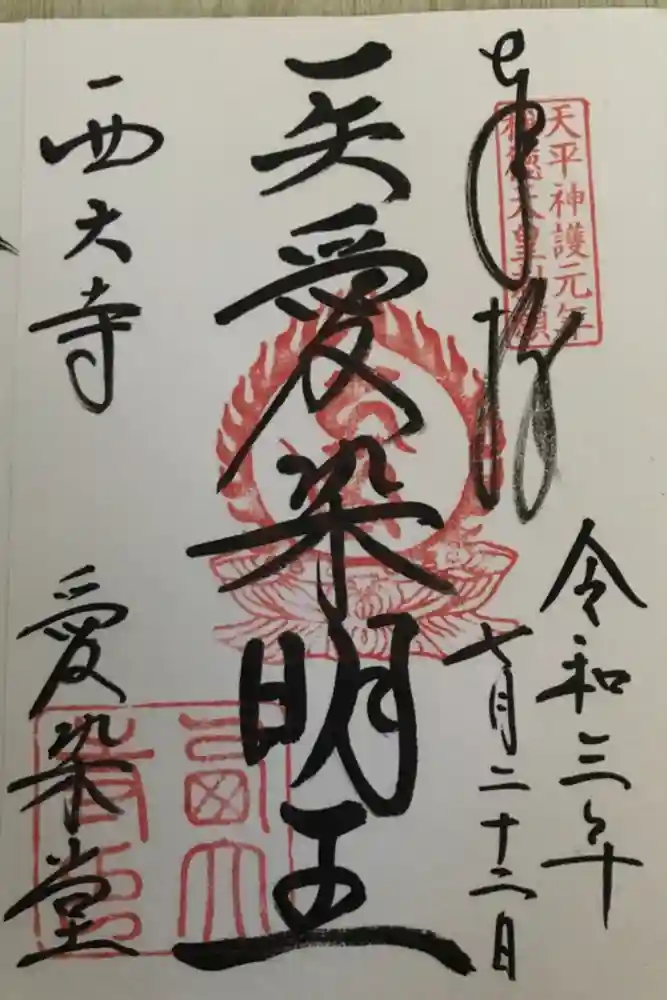 奉拝
天平神護元年
称徳天皇勅願
令和三年
七月二十二日
一矢愛染明王
西大寺
愛染堂
西大
寺印